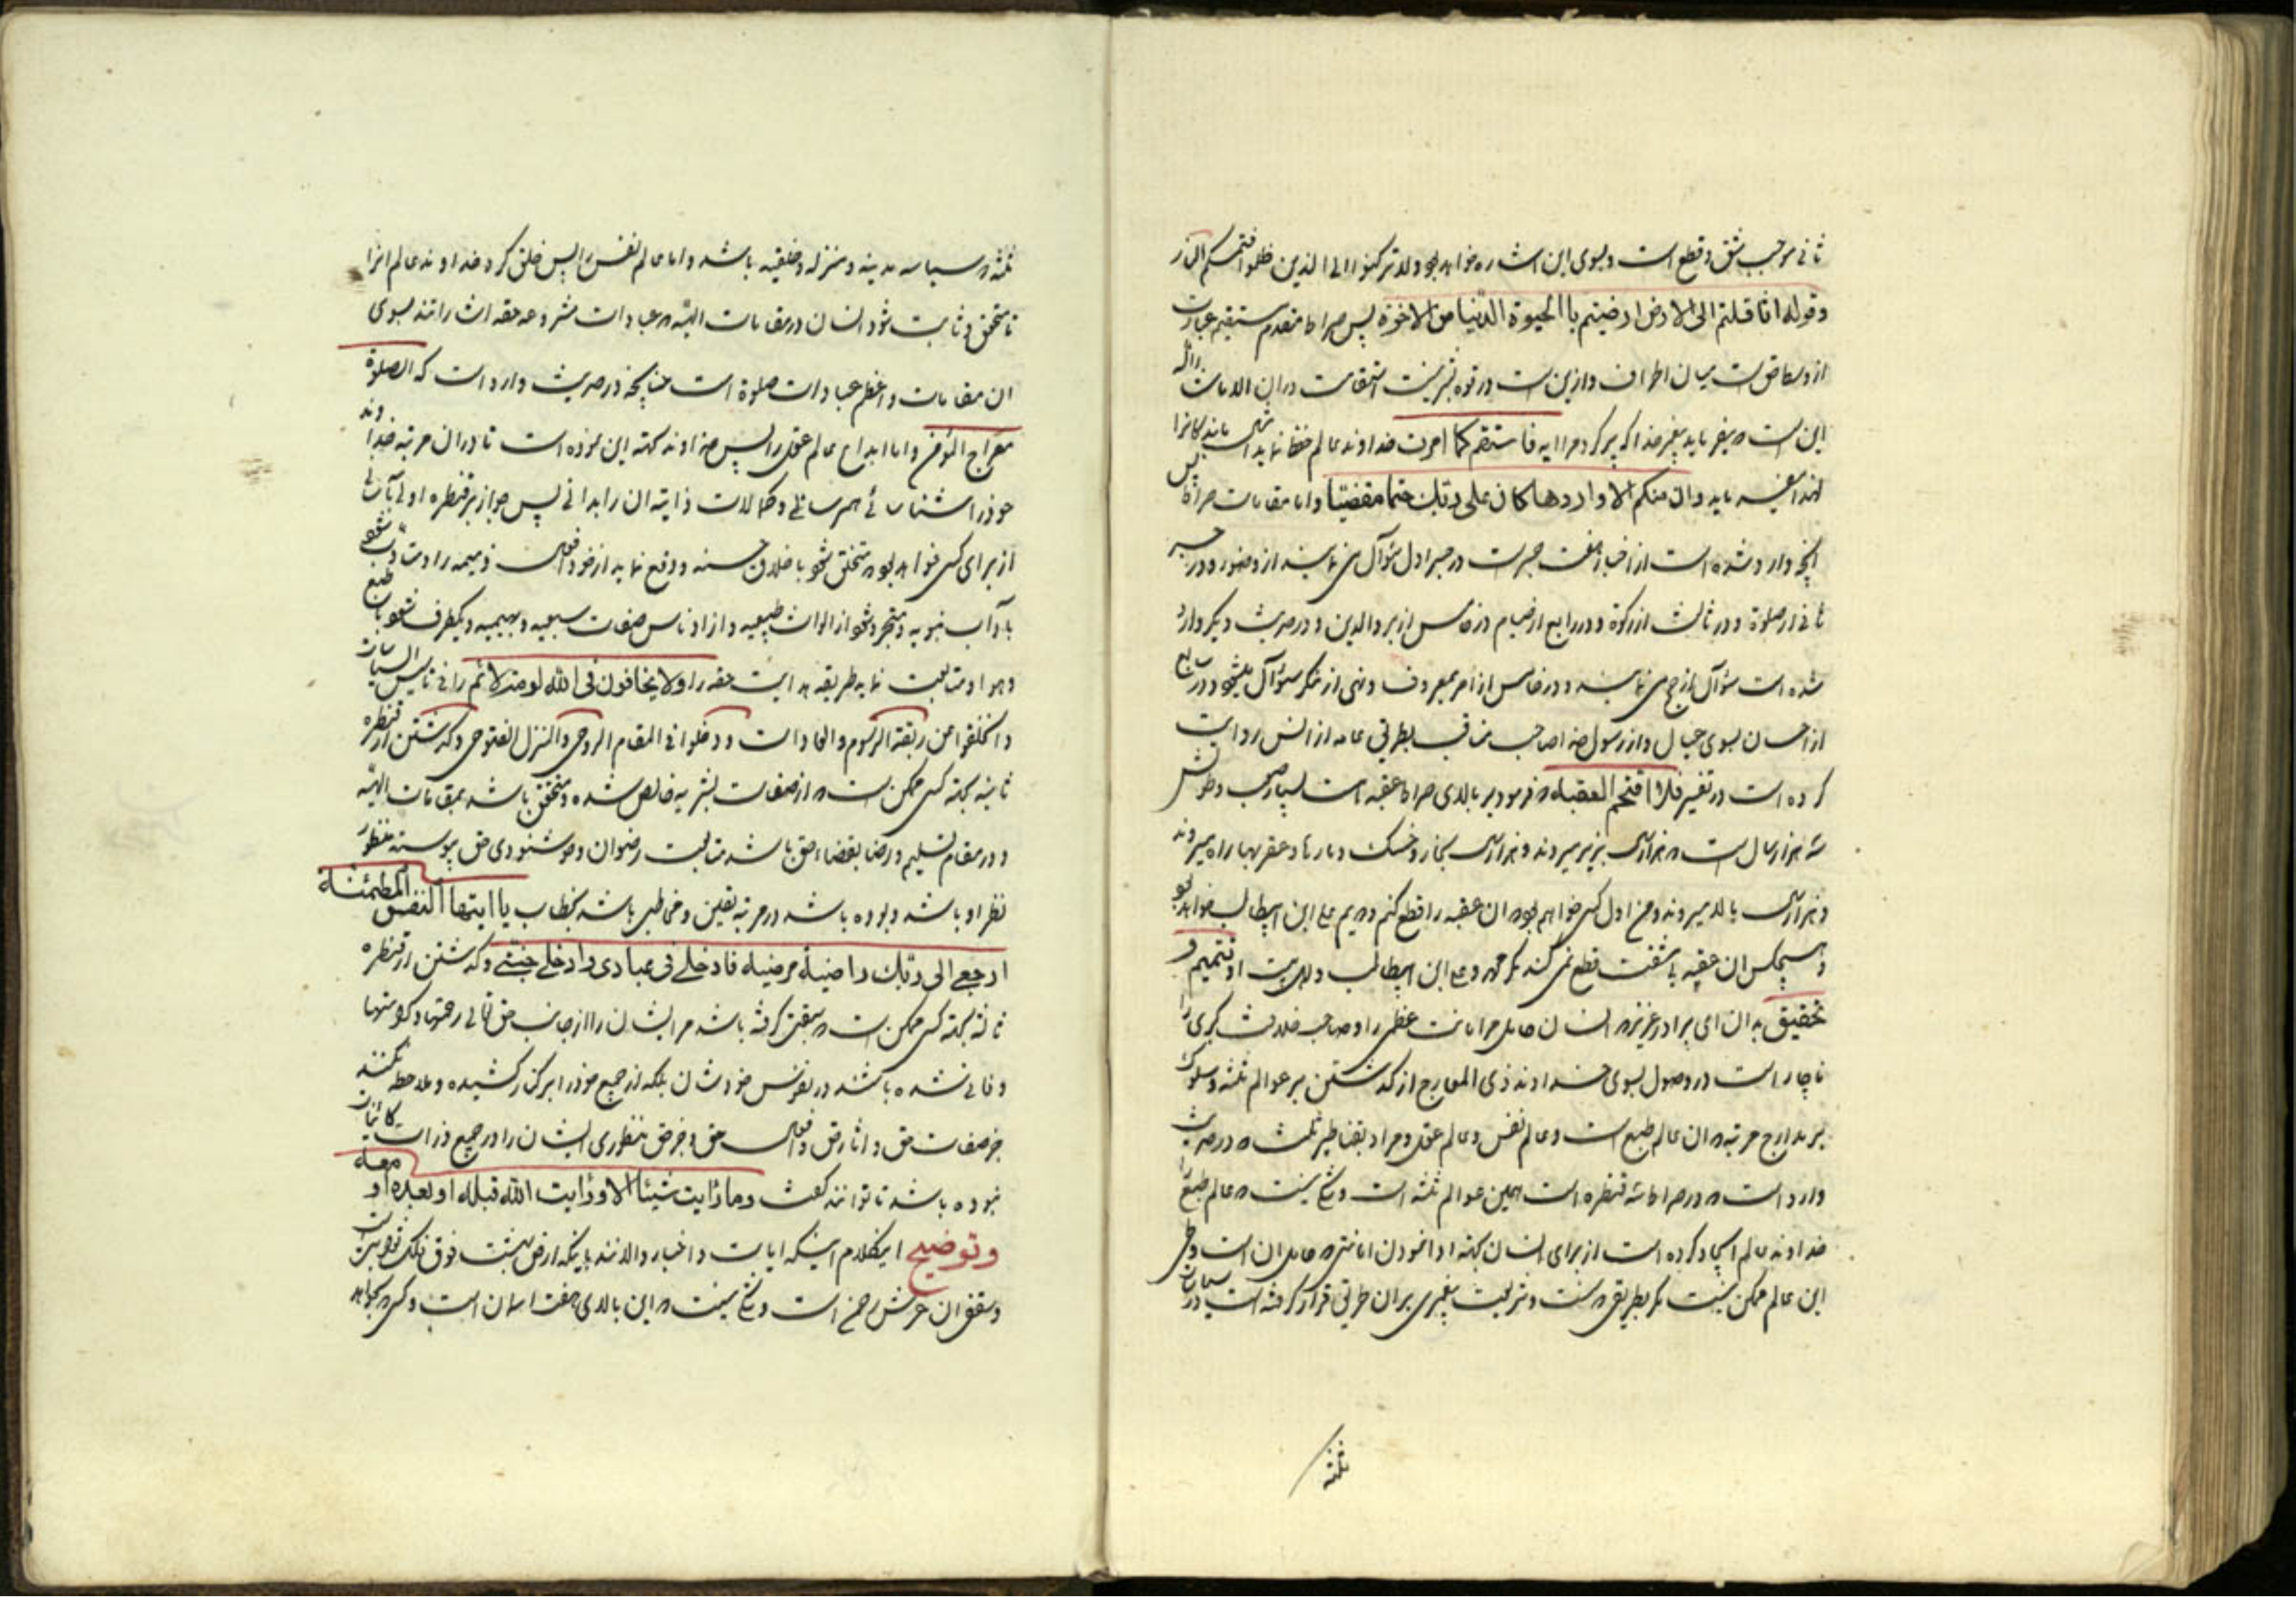 ثانی موجب شق و قطع است و بسوی این اشاره خواهد بود ولا ترکنوا الی الذین ظلموا فتمسکم النار
وقوله اثاقلتم الی الارض ارضیتم با الحیوة الدنیا من الاخرة پس صراط مستقیم عبارت
از وسط است میان اطراف و ازین است در قوه بشریت استقامت در ان
این است پیغمبر خدا که پیر کرد مرا ایه فاستقم کما امرت خداوند عالم
لهذا میفرماید وان منکم الا واردها کان علی ربک حتما مقضیا واما مقامات صراط پس
انچه وارد شده است از اخبار هفت جسر است در جسر اول سؤال می نمایند از وضو و در جسر
ثانی از صلوة و در ثالث از زکوة و در رابع از صیام و در خامس از بر والدین و در حدیث دیگر وارد
شده است سؤال از حج می نمایند و در خامس از امر بمعروف و نهی از منکر سؤال میشود و در سابع
از احسان بسوی عیال و از رسول خدا صاحب مناقب بطریق عامه از انس روایت
کرده است در تفسیر فلا اقتحم العقبه فرمود بر بالای صراط عقبه است بسیار صعب و طولش
سه هزار سال است هزار سال بزیر میروند و هزار سال بخار و خسک و مارها و عقربها راه میروند
و هزار سال بالا میروند و من اول کسی خواهم بود ان عقبه را قطع کنم و دویم علی ابن ابیطالب خواهد بود
و هیچکس ان عقبه با مشقت قطع نمی کند مگر محمد و علی ابن ابیطالب و اهل بیت او تتمیم و
تحقیق بدان ای برادر عزیز انسان حامل امانت عظمی را و صاحب خلافت کبری را
ناچار است در وصول بسوی خداوند ذی المعارج از گذشتن بر عوالم ثلثه و سلوک
بر مدارج مرتبه ان عالم طبع است و عالم نفس و عالم عقل و مراد بقناطیر ثلث در حدیث
وارد است در صراط سه قنطره است همین عوالم ثلثه است و شکی نیست عالم طبع را
خداوند عالم ایجاد کرده است از برای انسان بجهة ادا نمودن امانتی حامل ان است و طی
این عالم ممکن نیست مگر بطریقی سنت و شریعت پیغمبری بران طریق قرار گرفته است
ثلثه
ثلثه سیاسه مدینه و منزله و خلقیه باشد واما عالم نفس پس خلق کرد خداوند عالم انرا
تا متحقق و ثابت شود انسان در مقامات الهیه عبادات مشروعه حقه اشاراتند بسوی
ان مقامات و اعظم عبادات صلوة است چنانچه در حدیث وارد است که الصلوة
معراج المؤمن واما ابداع عالم عقل پس خداوند بجهة این نموده است تا دران مرتبه خداوند
خود را شناسائی بهم رسانی و کمالات ذاتیه ان را بدانی پس جواز بر قنطره اولی
از برای کسی خواهد بود متخلق شود باخلاق حسنه و دفع نماید از خود افعال ذمیمه را و متادب شود
باداب نبویه و متجرد شود از الواث طبیعیه و از ادناس صفات سبعیه و بهیمیه و
و هوا و متابعت نماید طریقه هدایت حقه را ولا یخافون فی الله لومة لائم را
وانخلقوا من ربقة الرسوم والعادات ودخلوا فی المقام الروحی والمنزل الفتوحی و گذشتن از قنطره
ثانیه بجهة کسی ممکن است از صفات بشریه خالص شده و متحقق باشد بمقامات الهیه
و در مقام تسلیم و رضا بقضاء حق باشد متابعت رضوان و خوشنودی حق پیوسته منظور
نظر او باشد و بوده باشد در مرتبه یقین و مخاطب باشد بخطاب یا ایتها النفس المطمئنة
ارجعی الی ربک راضیة مرضیة فادخلی فی عبادی وادخلی جنتی و گذشتن از قنطره
ثالثه بجهة کسی ممکن است سبقت گرفته باشد مر ایشان را از جانب حق تعالی رحمتها و کرامتها
و فانی شده باشند در نفوس خودشان بلکه از جمیع خود را بر کنار کشیده و ملاحظه نکنند
جز صفات حق و اثار حق و افعال حق و جز حق منظوری ایشان را در جمیع ذرات کائنات
نبوده باشد تا توانند گفت وما رایت شیئا الا ورایت الله قبله او بعده او معه
وتوضیح اینکلام اینکه ایات و اخبار دالاند باینکه ارض بهشت فوق فلک ثوابت
و سقف ان عرش رحمن است و شکی نیست این بالای هفت اسمان است و کسی بخواهد